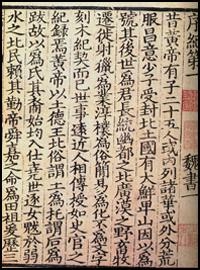 序紀第一 魏書一
昔黄帝有子二十五人或内列諸華或外分荒
服昌意少子受封北土國有大鮮卑山因以為
號其後世為君長統幽都之北廣漠之野畜牧
遷徙射獵為業淳樸為俗簡易為化不為文字
刻木紀契而已世事遠近人相傳授如史官之
紀錄焉黄帝以土德王北俗謂土為托謂后為
跋故以為氏其裔始均入仕堯世逐女魃於弱
水之北民賴其勤帝舜嘉之命為田祖爰歷三